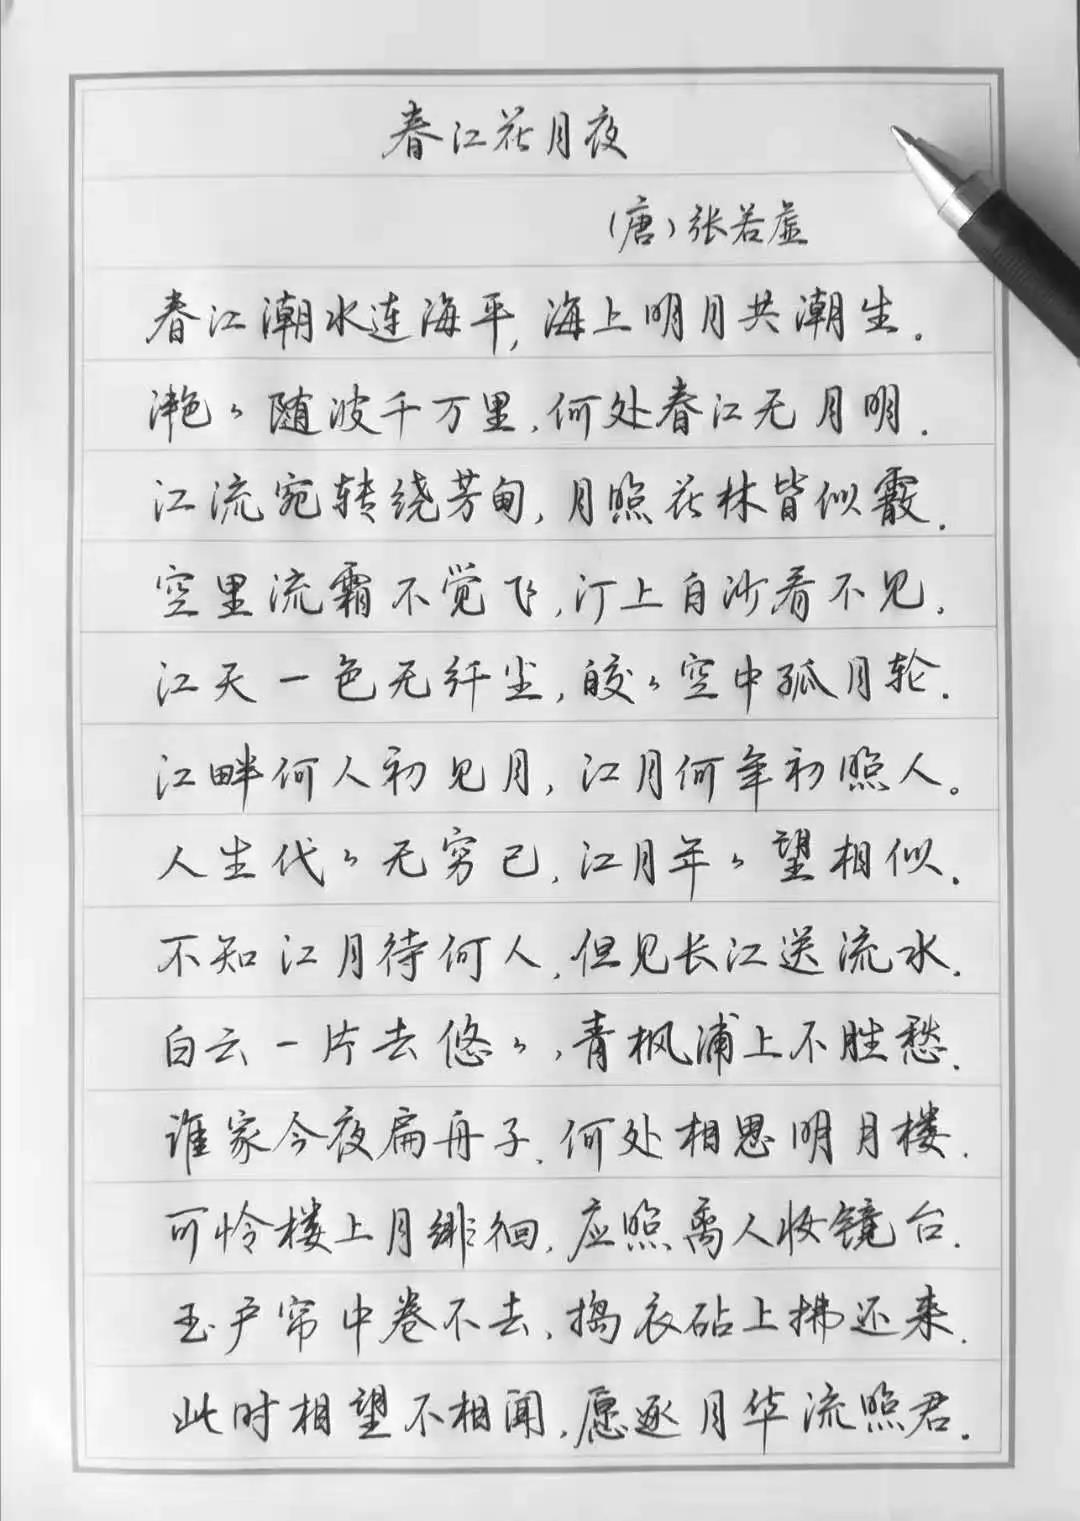 春江花月夜
(唐)张若虚
春江潮水连海平,海上明月共潮生.
滟滟随波千万里,何处春江无月明.
江流宛转绕芳甸,月照花林皆似霰.
空里流霜不觉飞,汀上白沙看不见.
江天一色无纤尘,皎皎空中孤月轮.
江畔何人初见月,江月何年初照人。
人生代代无穷已,江月年年望相似.
不知江月待何人,但见长江送流水.
白云一片去悠悠,青枫浦上不胜愁.
谁家今夜扁舟子.何处相思明月楼.
可怜楼上月徘徊,应照离人妆镜台.
玉户帘中卷不去,捣衣砧上拂还来.
此时相望不相闻,愿逐月华流照君.